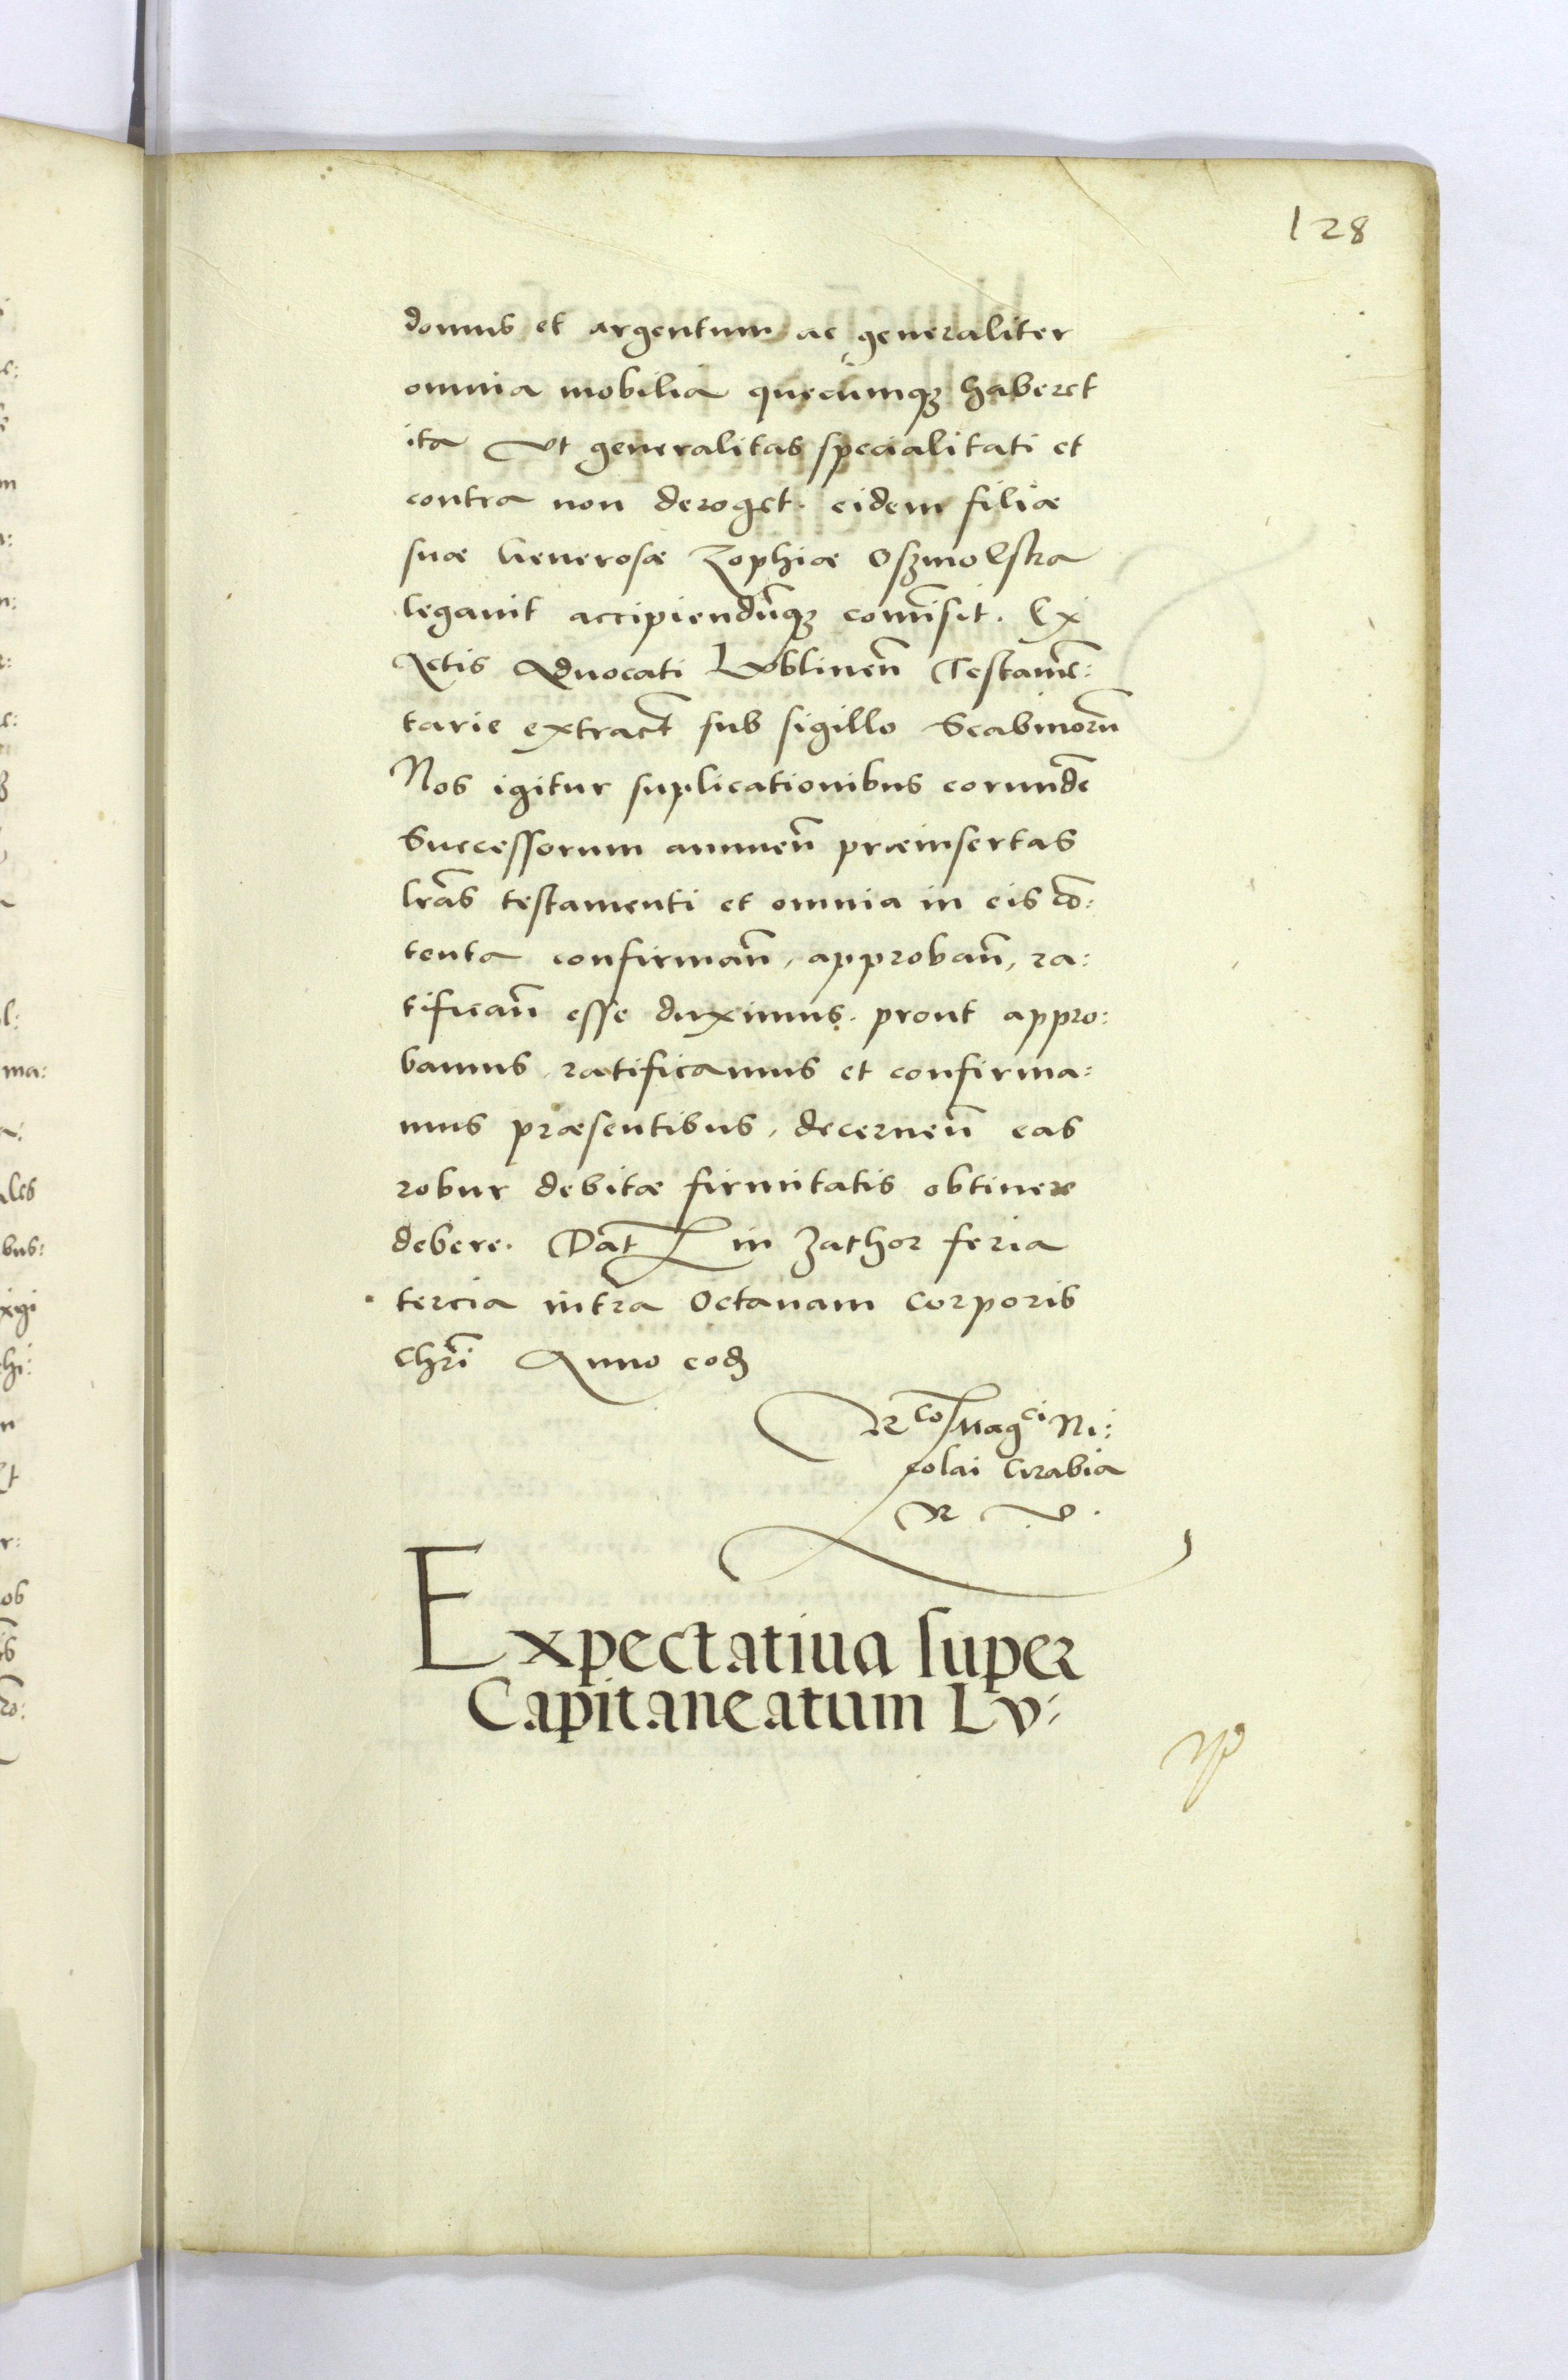 128
domus et argentum ac generaliter
omnia mobilia quecumqꝫ haberet
ita vt generalitas specialitati et
contra non deroget. eidem filiæ
suæ Generosæ Zophiæ Oszmolska
legauit accipiendūqꝫ com̄isit. Ex
Actis Aduocati Lvblineñ Testamē:
tarie extract̄ sub sigillo Scabinorū
Nos igitur suplicationibus eorundē
Successorum annueñ præinsertas
lr̄as testamenti et omnia in eis cō:
tenta confirmañ, approbañ, ra:
tificañ esse duximus. prout appro:
bamus, ratificamus et confirma:
mus præsentibus, decerneñ eas
robur debitæ firmitatis obtinere
debere. Dat̄ in Zathor feria
tercia intra Octauam Corporis
Chr̄i Anno eod
Rco Magci Ni:
colai Grabia
R. V.
Expectatiua super
Capitaneatum Lv: